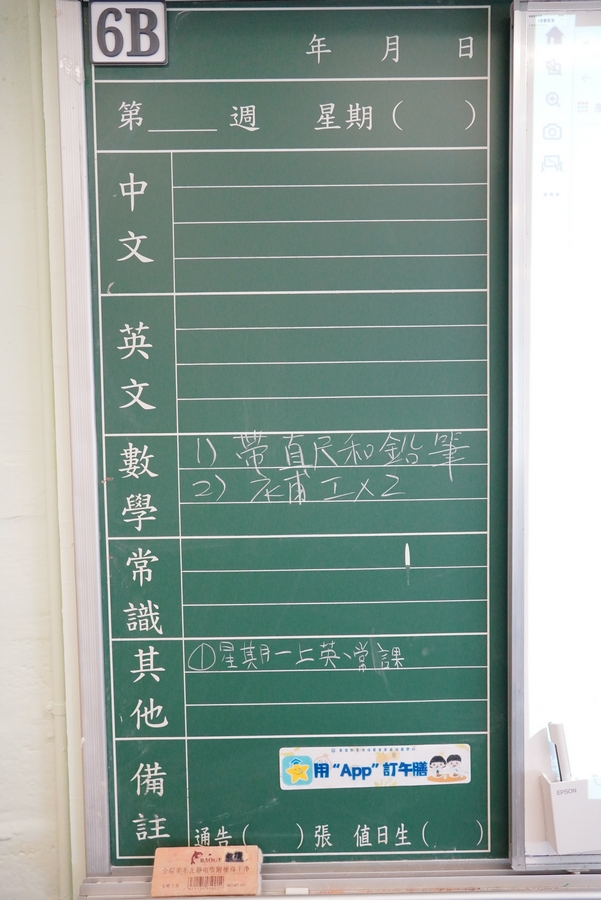 6B
年 月 日
第____週 星期( )
中文
英文
數學
1) 帶直尺和鉛筆
2) 補工X2
常識
其他
①星期一上英、常課
備註
用“App”訂午膳
通告( )張 值日生( )
EPSON